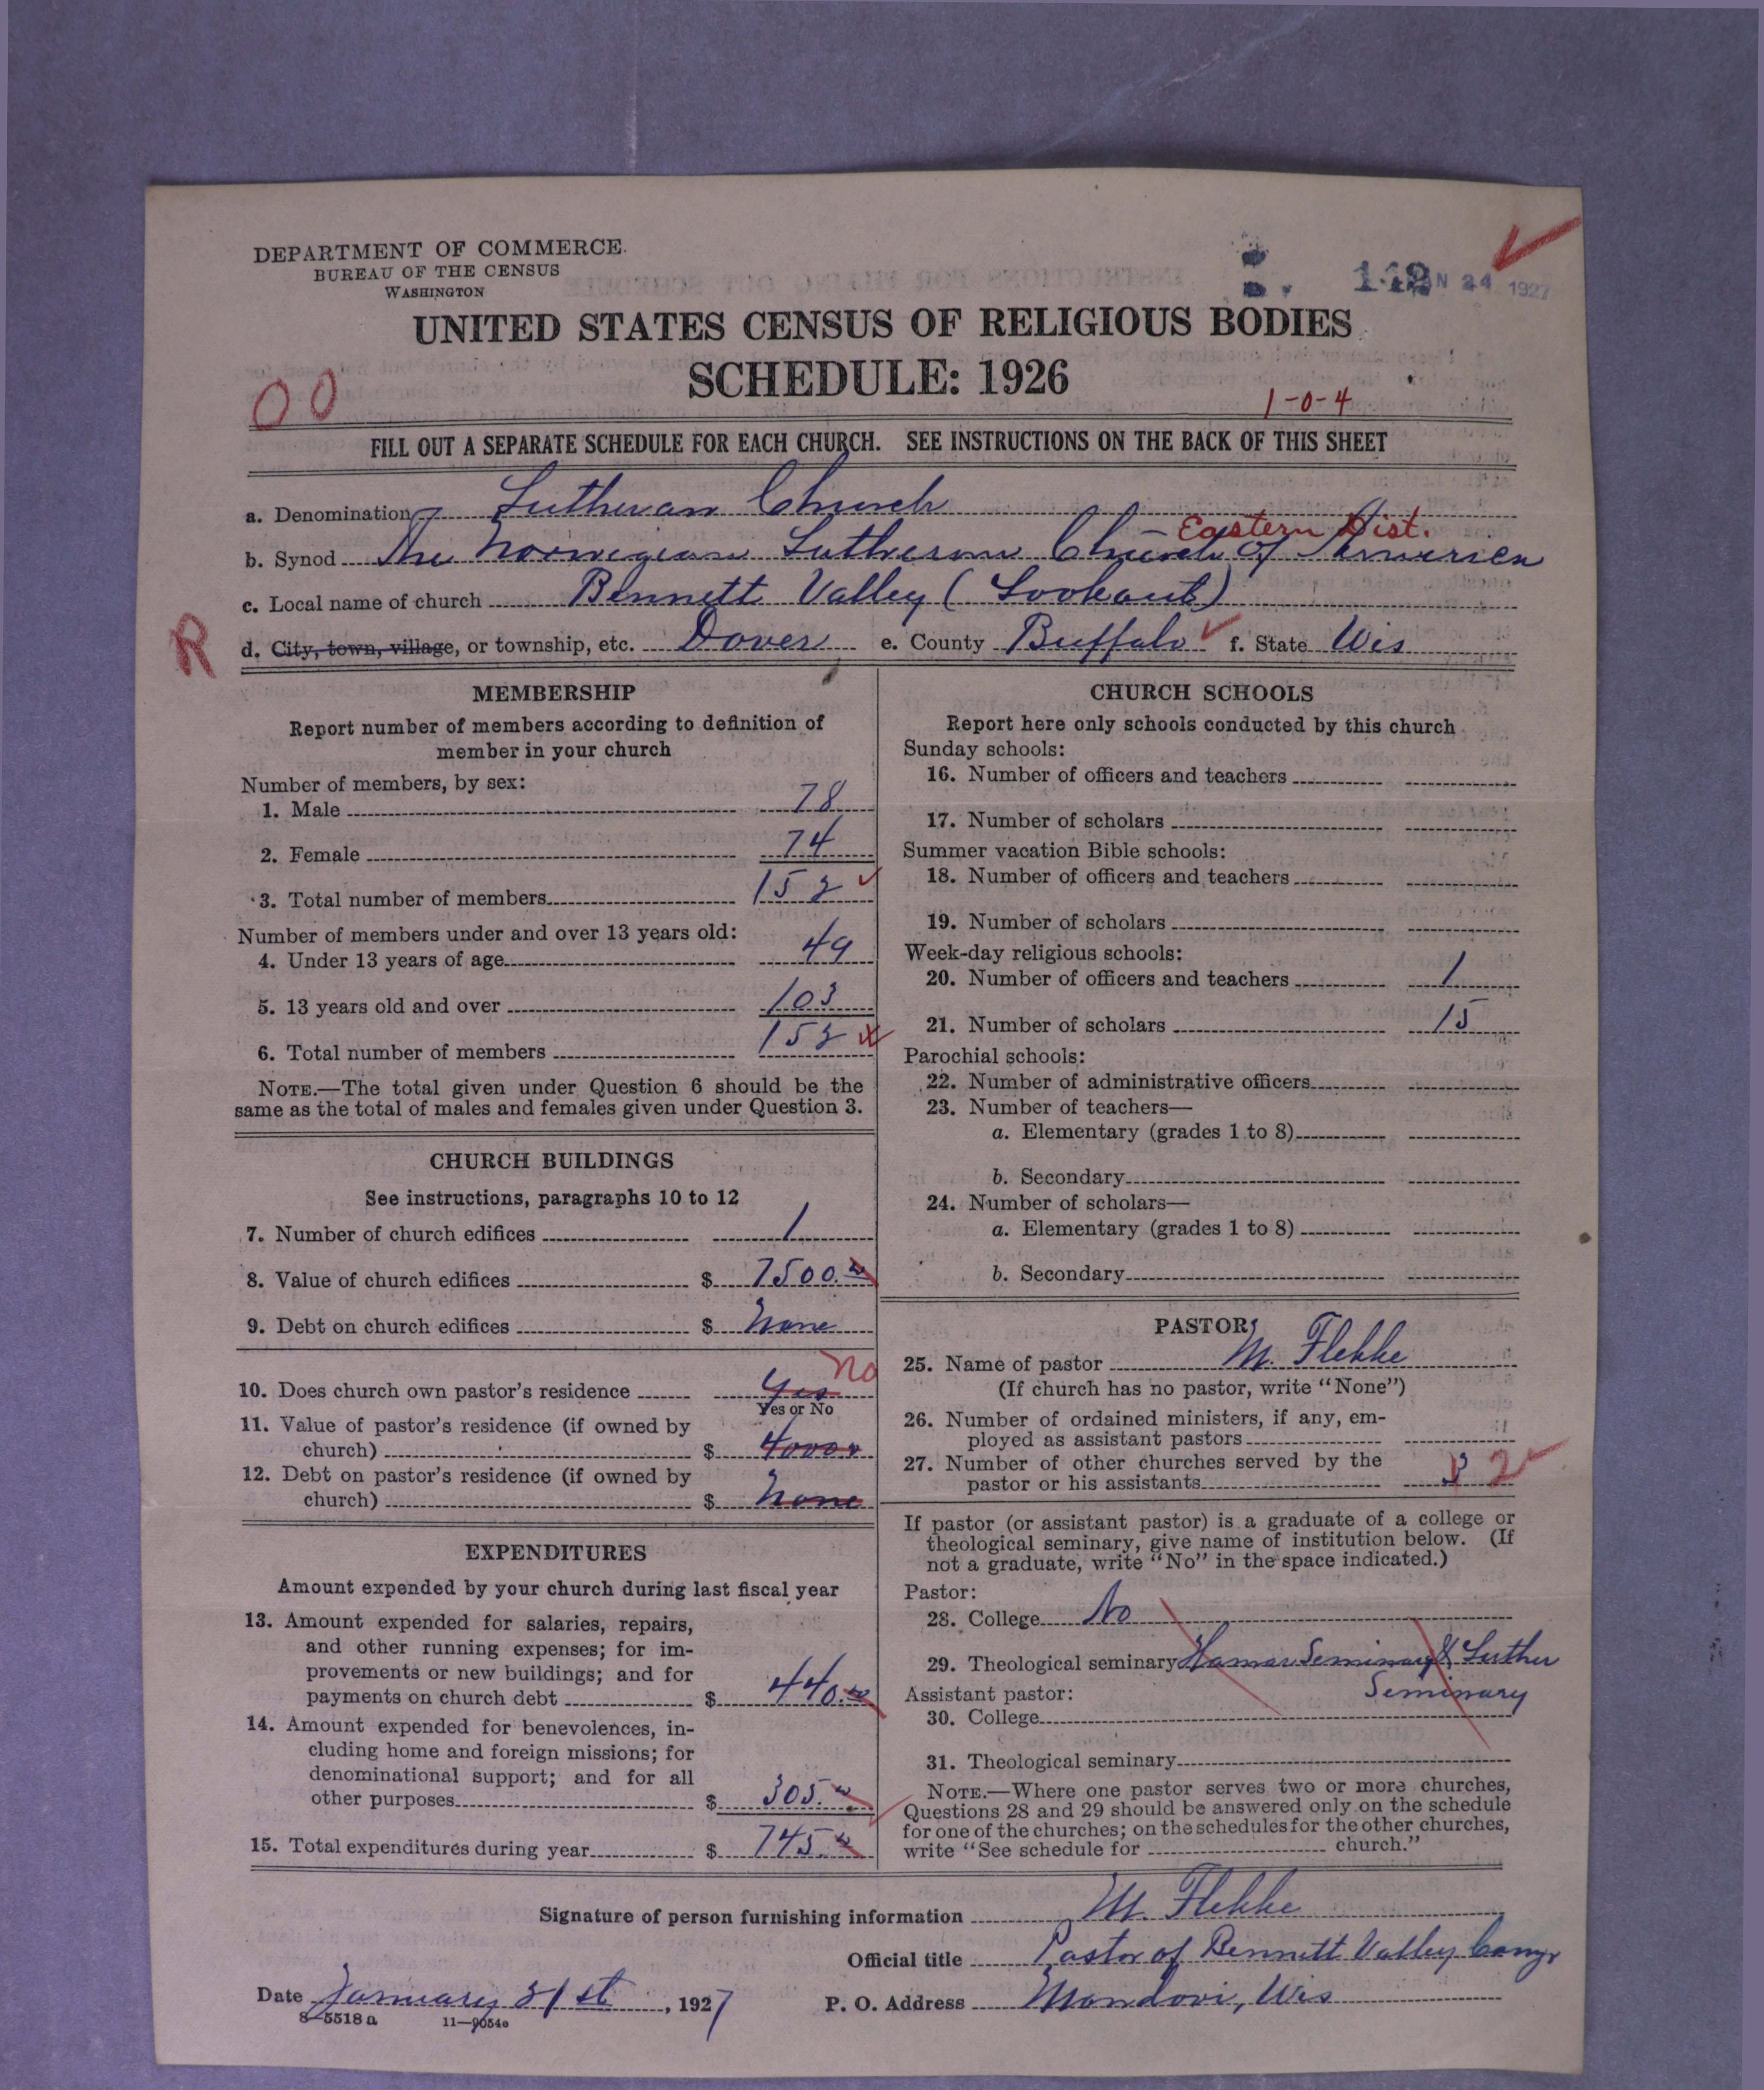 DEPARTMENT OF COMMERCE
BUREAU OF THE CENSUS
WASHINGTON
24 1927
UNITED STATES CENSUS OF RELIGIOUS BODIES
SCHEDULE: 1926
00
1-0-4
FILL OUT A SEPARATE SCHEDULE FOR EACH CHURCH. SEE INSTRUCTIONS ON THE BACK OF THIS SHEET
a. Denomination Lutheran Church
Eastern Dist.
b. Synod The Norwegian Lutheran Church of America
c. Local name of church Bennett Valley (Lookout)
R
d. City, town, village, or township, etc. Dover e. County Buffalo f. State Wis
MEMBERSHIP
Report number of members according to definition of
member in your church
Number of members, by sex:
1. Male 78
2. Female 74
3. Total number of members 152
Number of members under and over 13 years old:
4. Under 13 years of age 49
5. 13 years old and over 103
6. Total number of members 152
NOTE.—The total given under Question 6 should be the
same as the total of males and females given under Question 3.
CHURCH BUILDINGS
See instructions, paragraphs 10 to 12
7. Number of church edifices 1
8. Value of church edifices $ 7500.00
9. Debt on church edifices $ None
no
10. Does church own pastor's residence Yes
Yes or No
11. Value of pastor's residence (if owned by
church) $ 4000
12. Debt on pastor's residence (if owned by
church) $ None
EXPENDITURES
Amount expended by your church during last fiscal year
13. Amount expended for salaries, repairs,
and other running expenses; for im-
provements or new buildings; and for
payments on church debt $ 440.00
14. Amount expended for benevolences, in-
cluding home and foreign missions; for
denominational support; and for all
other purposes $ 305.00
15. Total expenditures during year $ 745.00
CHURCH SCHOOLS
Report here only schools conducted by this church
Sunday schools:
16. Number of officers and teachers
17. Number of scholars
Summer vacation Bible schools:
18. Number of officers and teachers
19. Number of scholars
Week-day religious schools:
20. Number of officers and teachers 1
21. Number of scholars 15
Parochial schools:
22. Number of administrative officers
23. Number of teachers—
a. Elementary (grades 1 to 8)
b. Secondary
24. Number of scholars—
a. Elementary (grades 1 to 8)
b. Secondary
PASTOR
25. Name of pastor M. Flekke
(If church has no pastor, write "None")
26. Number of ordained ministers, if any, em-
ployed as assistant pastors
27. Number of other churches served by the
pastor or his assistants 3 2
If pastor (or assistant pastor) is a graduate of a college or
theological seminary, give name of institution below. (If
not a graduate, write "No" in the space indicated.)
Pastor:
28. College No
29. Theological seminary Hamar Seminary & Luther
Seminary
Assistant pastor:
30. College
31. Theological seminary
NOTE.—Where one pastor serves two or more churches,
Questions 28 and 29 should be answered only on the schedule
for one of the churches; on the schedules for the other churches,
write "See schedule for church."
Signature of person furnishing information M. Flekke
Official title Pastor of Bennett Valley Congr
Date January 21st, 1927 P. O. Address Mondovi, Wis
8-5518 a 11—9054e